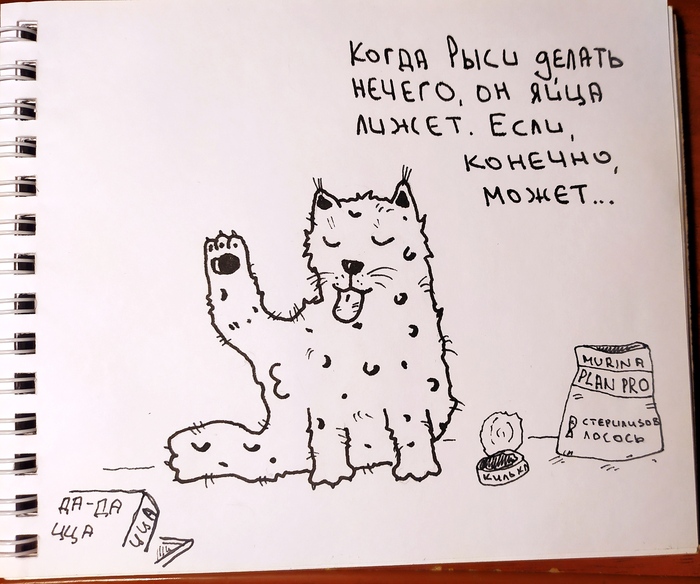 КОГДА РЫСИ ДЕЛАТЬ
НЕЧЕГО, ОН ЯЙЦА
ЛИЖЕТ. ЕСЛИ,
КОНЕЧНО,
МОЖЕТ...
MURINA
PLAN PRO
СТЕРИЛИЗОВ
ЛОСОСЬ
КИЛЬКА
ДА-ДА
ЦЦА
ЦЦА